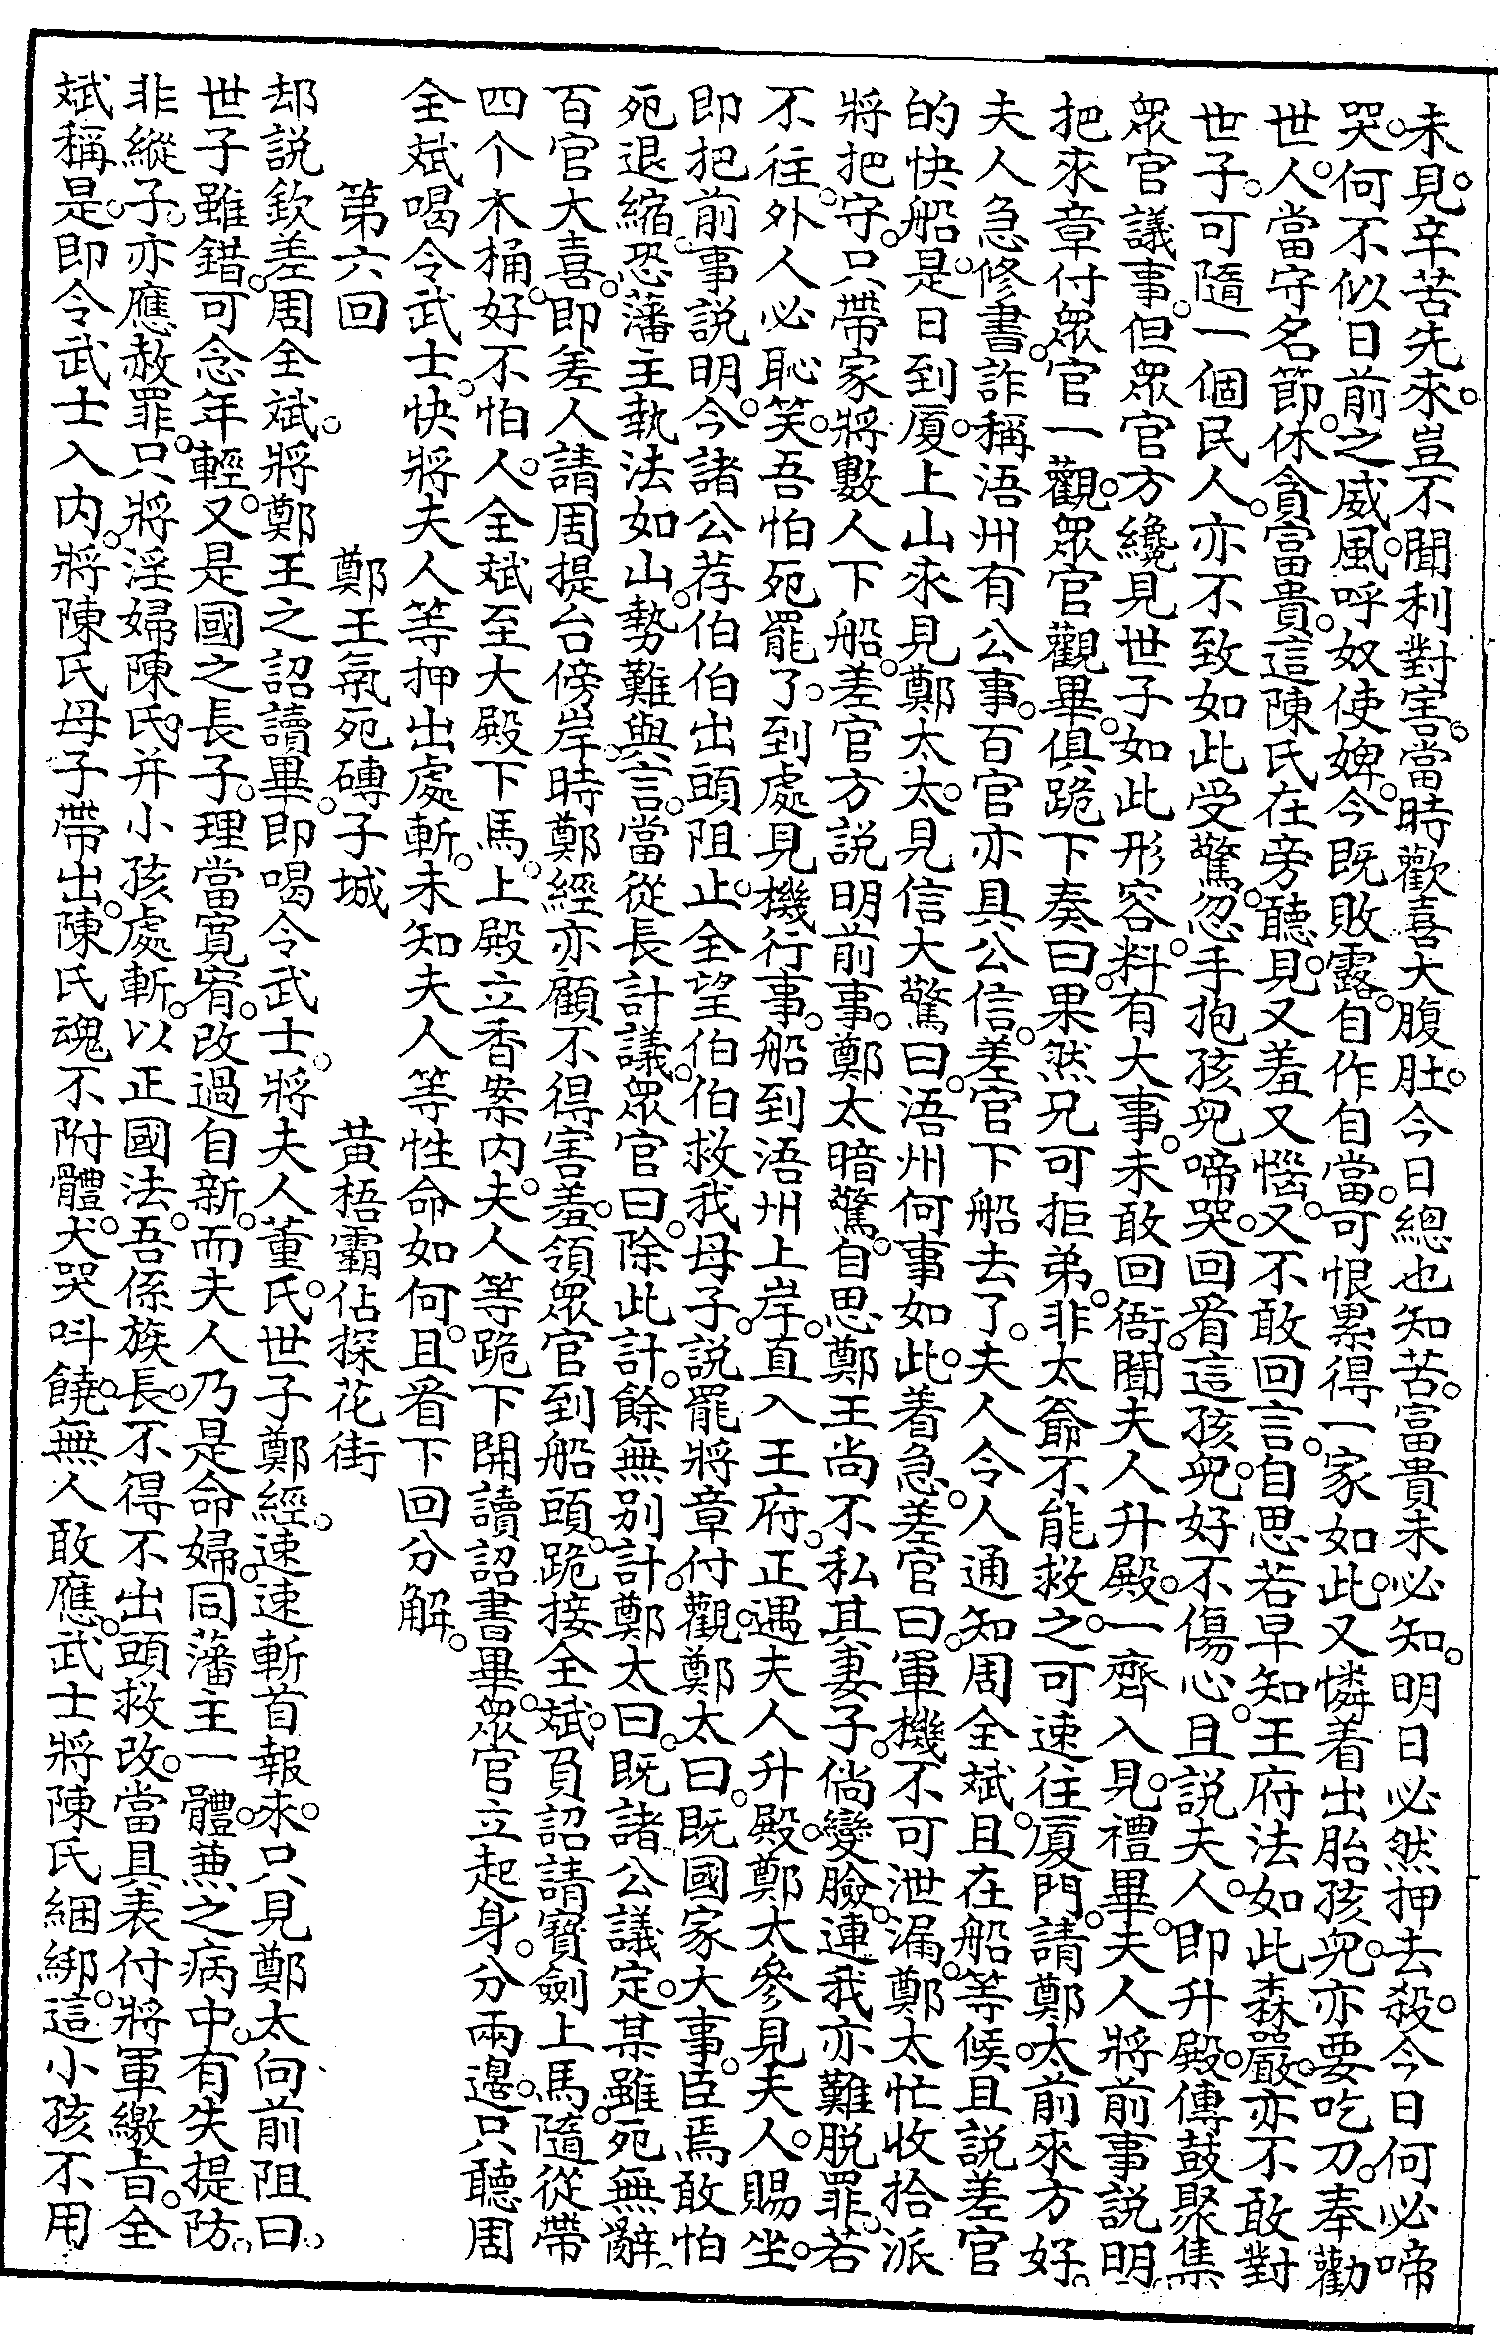 未見。辛苦先來。豈不聞利對害。當時歡喜大腹肚。今日總也知苦。富貴未必知。明日必然押去殺。今日何必啼
哭。何不似日前之威風。呼奴使婢。今既敗露。自作自當。可恨累得一家如此。又憐着出胎孩兒。亦要吃刀。奉勸
世人。當守名節。休貪富貴。這陳氏在旁聽見。又羞又惱。又不敢回言。自思若早知王府法如此森嚴。亦不敢對
世子。可隨一個民人。亦不致如此受驚。忽手抱孩兒啼哭。回看這孩兒。好不傷心。且說夫人。即升殿。傳鼓聚集
眾官議事。但眾官方纔見世子如此形容。料有大事。未敢回衙。聞夫人升殿。一齊入見。禮畢。夫人將前事說明
把來章付眾官一觀。眾官觀畢。俱跪下奏曰。果然兄可拒弟。非太爺不能救之。可速往廈門。請鄭太前來方好。
夫人急修書。詐稱浯州有公事。百官亦具公信。差官下船去了。夫人令人通知周全斌。且在船等候。且說差官
的快船。是日到廈。上山來見鄭太太。見信大驚曰。浯州何事如此着急。差官曰。軍機不可泄漏。鄭太忙收拾派
將把守。只帶家將數人下船。差官方說明前事。鄭太暗驚。自思鄭王尚不私其妻子。倘變臉。連我亦難脫罪。若
不往。外人必恥笑。吾怕死罷了。到處見機行事。船到浯州上岸。直入王府。正遇夫人升殿。鄭太參見夫人。賜坐。
即把前事說明。今諸公荐伯伯出頭阻止。全望伯伯救我母子。說罷將章付觀。鄭太曰。既國家大事。臣焉敢怕
死退縮。恐藩主執法如山。勢難與言。當從長計議。眾官曰。除此計。餘無別計。鄭太曰。既諸公議定。某雖死無辭。
百官大喜。即差人請周提台傍岸。時鄭經亦顧不得害羞。領眾官到船頭。跪接全斌。負詔請寶劍上馬。隨從帶
四个木桶。好不怕人。全斌至大殿下馬。上殿立香案內。夫人等跪下開讀詔書畢。眾官立起身。分兩邊。只聽周
全斌喝令武士。快將夫人等押出處斬。未知夫人等性命如何。且看下回分解。
第六回 鄭王氣死磚子城 黃梧霸佔探花街
却說欽差周全斌。將鄭王之詔讀畢。即喝令武士。將夫人董氏。世子鄭經。速速斬首報來。只見鄭太向前阻曰。
世子雖錯。可念年輕。又是國之長子。理當寬宥。改過自新。而夫人乃是命婦。同藩主一體。兼之病中。有失提防。
非縱子。亦應赦罪。只將淫婦陳氏并小孩處斬。以正國法。吾係族長。不得不出頭救改。當具表付將軍繳旨。全
斌稱是。即令武士入內。將陳氏母子帶出。陳氏魂不附體。犬哭呌饒。無人敢應。武士將陳氏綑綁。這小孩不用